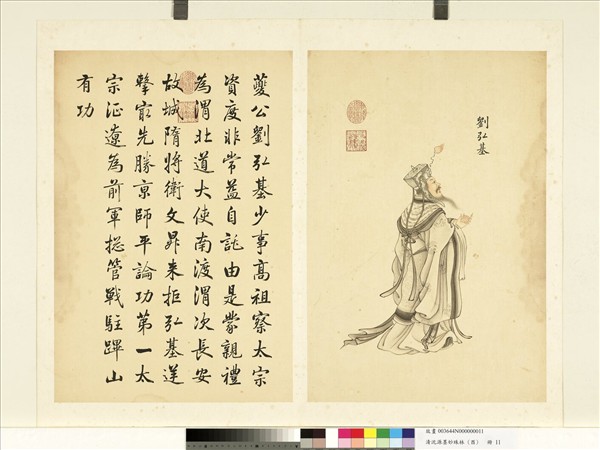 劉弘基
夔公劉弘基少事高祖察太宗
資度非常益自託由是蒙親禮
為渭北道大使南渡渭次長安
故城隋將衛文昇來拒弘基逆
擊㝡先勝京師平論功第一太
宗征遼為前軍揔管戰駐蹕山
有功
故畫 003644N000000011
清沈源墨妙珠林（酉） 冊 11